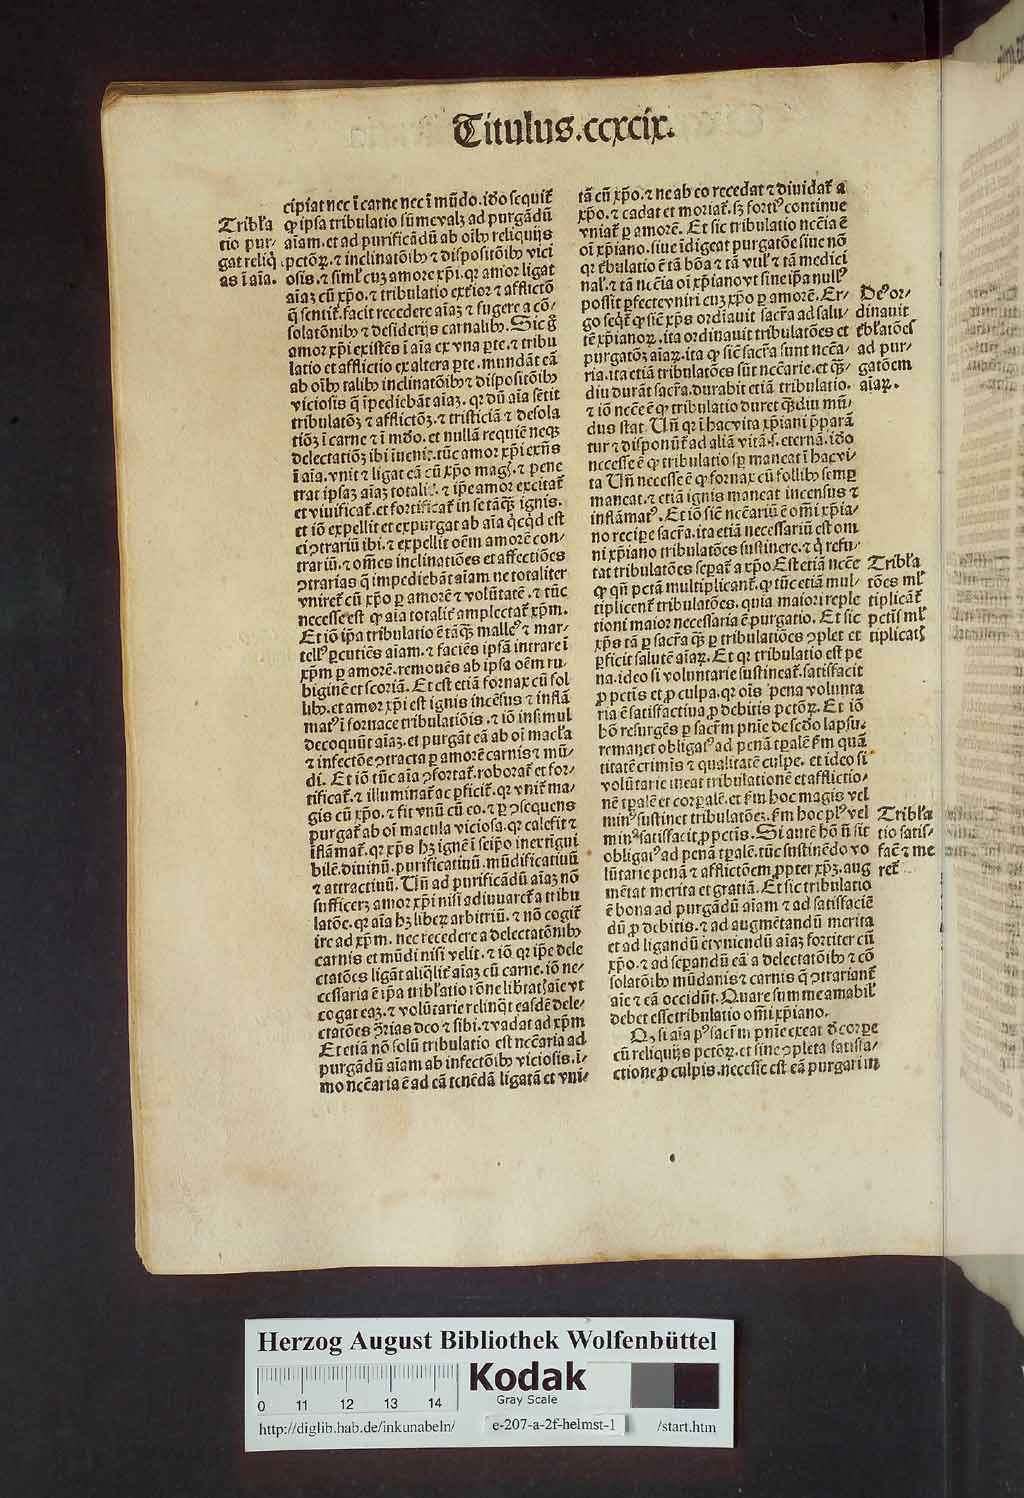 Titulus.ccxcix.
cipiat nec ī carne nec ī mūdo. iđo sequit̄
Tribl̄a
tio pur-
gat reliq̄
as ī aīa.
ꝙ ipsa tribulatio sūme valꝫ ad purgādū
aīam. et ad purificādū ab oībꝰ reliquijs
pctōꝝ. ⁊ inclinatōibꝰ ⁊ dispositōibꝰ vici
osis. ⁊ simĺ cuꝫ amore xp̄i. qꝛ amor ligat
aīaꝫ cū xp̄o. ⁊ tribulatio exteríor ⁊ afflictō
q̄ sentit̄. facit recedere aīaꝫ ⁊ fugere a cō-
solatōnibꝰ ⁊ desiderijs carnalibꝰ. Sic g̊
amor xp̄i existēs ī aīa ex vna ꝑte. ⁊ tribu
latio et afflictio ex altera ꝑte. mundāt eā
ab oībꝰ talibꝰ inclinatōibꝰ ⁊ dispositōibꝰ
viciosis q̄ īpediebāt aīaꝫ. qꝛ dū aīa sētit
tribulatōꝫ ⁊ afflictōꝫ. ⁊ tristiciā ⁊ desola
tiōꝫ ī carne ⁊ ī mđo. et nullā requiē neqꝫ
delectatiōꝫ ibi inuenit. tūc amor xp̄i exn̄s
ī aīa. vnit ⁊ ligat eā cū xp̄o magꝭ. ⁊ pene
trat ipsaꝫ aīaꝫ totalit̄. ⁊ ip̄e amor excitat̄
et viuificat̄. et fortificat̄ in se tāqꝫ ignis.
et iō expellit et expurgat ab aīa q̇cq̇d est
ei ꝯtrariū ibi. ⁊ expellit oēm amorē con-
trariū. ⁊ om̄es inclinatiōes et affectiōes
ꝯtrarias q̄ impediebāt aīam ne totaliter
vniret̄ cū xp̄o ꝑ amorē ⁊ volūtatē. ⁊ tūc
necesse est ꝙ aīa totalit̄ amplectat̄ xp̄m.
Et iō ip̄a tribulatio ē tāqꝫ malleꝰ ⁊ mar-
tellꝰ ꝑcutiēs aīam. ⁊ faciēs ipsā intrare ī
xp̄m ꝑ amorē. remouēs ab ipsa oēm ru-
biginē et scoriā. Et est etiā fornax cū fol
libꝰ. et amor xp̄i est ignis incēsus ⁊ inflā
matꝰ ī fornace tribulatiōis. ⁊ iō insimul
decoquūt aīaꝫ. et purgāt eā ab oī macĺa
⁊ infectōe ꝯtracta ꝑ amorē carnis ⁊ mū-
di. Et iō tūc aīa ꝯfortat̄. roborat̄ et for-
tificat̄. ⁊ illuminat̄ ac ꝑficit̄. qꝛ vnit̄ ma-
gis cū xp̄o. ⁊ fit vnū cū eo. ⁊ ꝑ ꝯsequens
purgat̄ ab oī macula viciosa. qꝛ calefit ⁊
īflāmat̄. qꝛ xp̄s hꝫ ignē ī seip̄o inextīgui
bilē. diuinū. purificatiuū. mūdificatiuū
⁊ attractiuū. Vn̄ ad purificādū aīaꝫ nō
sufficeret amor xp̄i nisi adiuuaret̄ a tribu
latōe. qꝛ aīa hꝫ liberꝝ arbitriū. ⁊ nō cogit̄
ire ad xp̄m. nec recedere a delectatōnibꝰ
carnis et mūdi nisi velit. ⁊ iō qꝛ ip̄e dele
ctatōes ligāt aliqlit̄ aīaꝫ cū carne. iō ne-
cessaria ē ip̄a tribl̄atio iōne libtatꝭ aīe vt
cogat eaꝫ. ⁊ volūtarie relinq̄t easdē dele-
ctatōes ꝯrias deo ⁊ sibi. ⁊ vadat ad xp̄m
Et etiā nō solū tribulatio est necāria ad
purgādū aīam ab infectōibꝰ viciosis. i-
mo necāria ē ad eā tenēdā ligatā et vni-
tā cū xp̄o. ⁊ ne ab eo recedat ⁊ diuidat̄ a
xp̄o. ⁊ cadat et moriat̄. sꝫ fortiꝰ continue
vniat̄ ꝑ amorē. Et sic tribulatio neceīa ē
oī xp̄iano. siue īdigeat purgatōe siue nō
qꝛ tribulatio ē tā bōa ⁊ tā vtiĺ ⁊ tā medici
naĺ. ⁊ tā neceīa oī xp̄iano vt sine ip̄a nullꝰ
possit ꝑfecte vniri cuꝫ xp̄o ꝑ amorē. Er-
Deꝰ or-
dinauit
tribl̄atōes
ad pur-
gatōem
aīaꝝ.
go seq̄t̄ ꝙ sic̄ xp̄s ordīauit sacr̄a ad salu-
tē xp̄ianoꝝ. ita ordinauit tribulatōes et
purgatōꝫ aīaꝝ. ita ꝙ sic̄ sacr̄a sunt necēa-
ria. ita etiā tribulatōes sūt necēarie. et qꝫ-
diu durāt sacr̄a. durabit etiā tribulatio.
⁊ iō necē ē ꝙ tribulatio duret qꝫdiu mū-
dus stat. Vn̄ qꝛ ī hac vita xp̄iani p̄parā
tur ⁊ disponūt̄ ad aliā vitā. s. eternā. iđo
necesse ē ꝙ tribulatio sꝑ maneat ī hac vi-
ta Vn̄ necesse ē ꝙ fornax cū follibꝰ semꝑ
maneat. ⁊ etiā ignis maneat incensus ⁊
inflāmatꝰ. Et iō sic̄ necēariū ē om̄i xp̄ia-
no recipe sacr̄a. ita etiā necessariū est om
ni xp̄iano tribulatōes sustinere. ⁊ q̇ refu-
tat tribulatōes seꝑat̄ a xp̄o Est etiā necē
Tribl̄a
tōes mĺ
tiplicāt̄
pctis mĺ
tiplicatꝭ
ꝙ qn̄ pctā multiplicant̄. ꝙ tūc etiā mul-
tiplicent̄ tribulatōes. quia maiori reple
tioni maior necessaria ē purgatio. Et sic
xp̄s tā ꝑ sacr̄a qꝫ ꝑ tribulatiōes ꝯplet et
ꝑficit salutē aīaꝝ. Et qꝛ tribulatio est pe
na. ideo si voluntarie sustineat̄. satisfacit
ꝓ pctis et ꝓ culpa. qꝛ oīs pena volunta
ria ē satisfactiua ꝓ debitis pctōꝝ. Et iō
hō resurgēs ꝑ sacr̄m pn̄ie de scđo lapsu.
remanet obligatꝰ ad penā tꝑalē ẜm quā
titatē crimis ⁊ qualitatē culpe. et ideo si
volūtarie ineat tribulationē et afflictio-
nē tꝑalē et corꝑalē. et ẜm hoc magis vel
minꝰ sustinet tribulatōeꝫ. ẜm hoc plꝰ vel
Tribl̄a
tio satis-
facē ⁊ me
ret̄
minꝰ satisfacit ꝓ pctis. Si autē hō n̄ sit
obligatꝰ ad penā tꝑalē. tūc sustinēdo vo
lūtarie penā ⁊ afflictōem ꝓpter xp̄ꝫ. aug
mētat merita et gratiā. Et sic tribulatio
ē bona ad purgādū aīam ⁊ ad satisfaciē
dū ꝓ debitis. ⁊ ad augmētandū merita
et ad ligandū et vniendū aīaꝫ fortiter cū
xp̄o. ⁊ ad seꝑandū eā a delectatōibꝰ ⁊ cō
solatōibꝰ mūdanis ⁊ carnis q̄ ꝯtrariant̄
aīe ⁊ eā occidūt. Quare summe amabiĺ
debet esse tribulatio om̄i xp̄iano.
Qꝙ si aīa pꝰ sacr̄m pn̄ie exeat đ corꝑe
cū reliquijs pctōꝝ. et sine ꝯpleta satisfa-
ctione ꝓ culpis. necesse est eā purgari in
Herzog August Bibliothek Wolfenbüttel
Kodak
Gray Scale
0 11 12 13 14
http://diglib.hab.de/inkunabeln/ e-207-a-2f-helmst-1 /start.htm